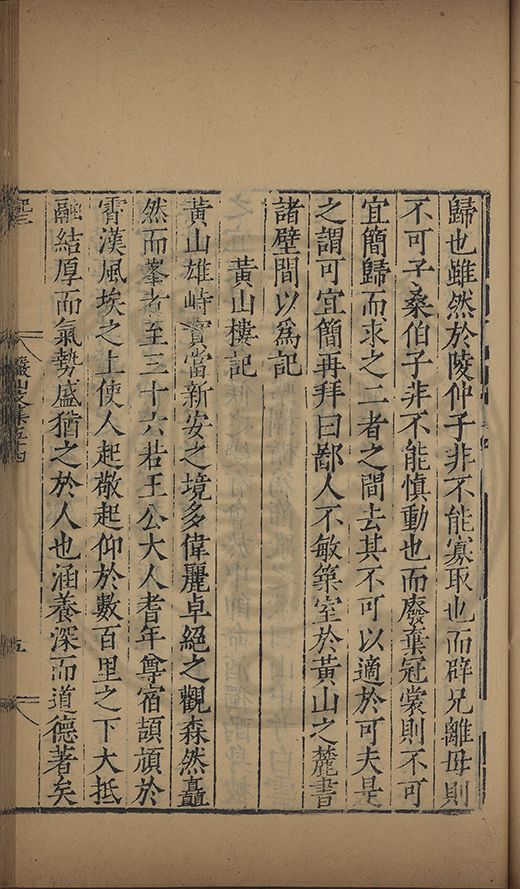 歸也雖然於陵仲子非不能寡取也而辟兄離母則
不可子桑伯子非不能慎動也而廢棄冠裳則不可
宜簡歸而求之二者之間去其不可以適於可夫是
之謂可宜簡再拜曰鄙人不敏築室於黃山之麓書
諸壁間以為記
黃山樓記
黃山雄峙實當新安之境多偉麗卓絕之觀森然矗
然而峯者至三十六若王公大人耆年尊宿頡頏於
霄漢風埃之上使人起敬起仰於數百里之下大抵
融結厚而氣勢盛猶之於人也涵養深而道德著矣